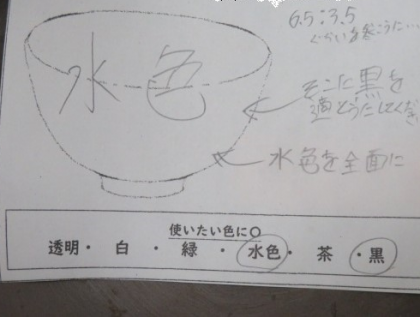 6.5:3.5
ぐらい
水色
そこに黒を
適とうにしてくださ
水色を全面に
使いたい色に○
透明・ 白 ・ 緑 ・ 水色・ 茶 ・黒